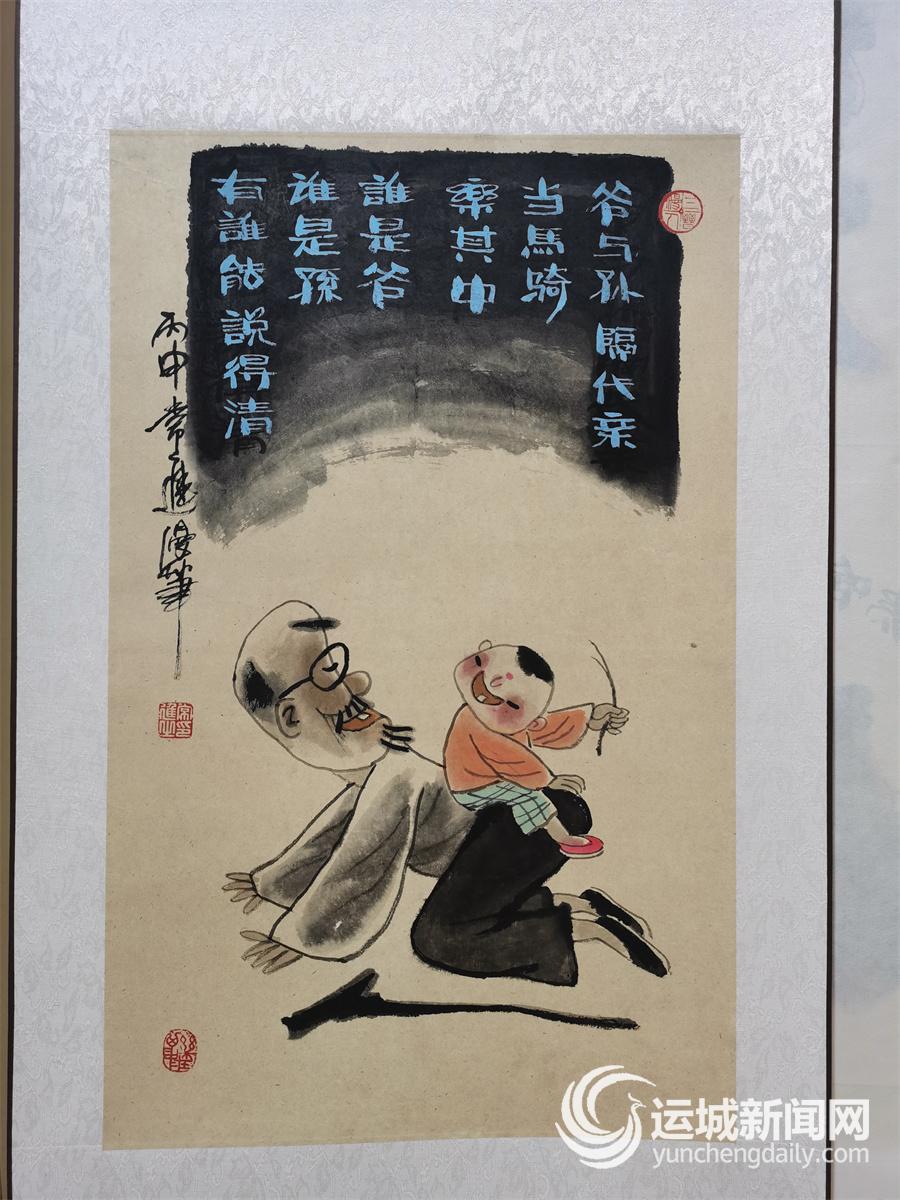 爷与孙隔代亲
当馬騎
樂其中
誰是爷
谁是孫
有誰能説得清
丙申常進漫筆
运城新闻网
yunchengdaily.com